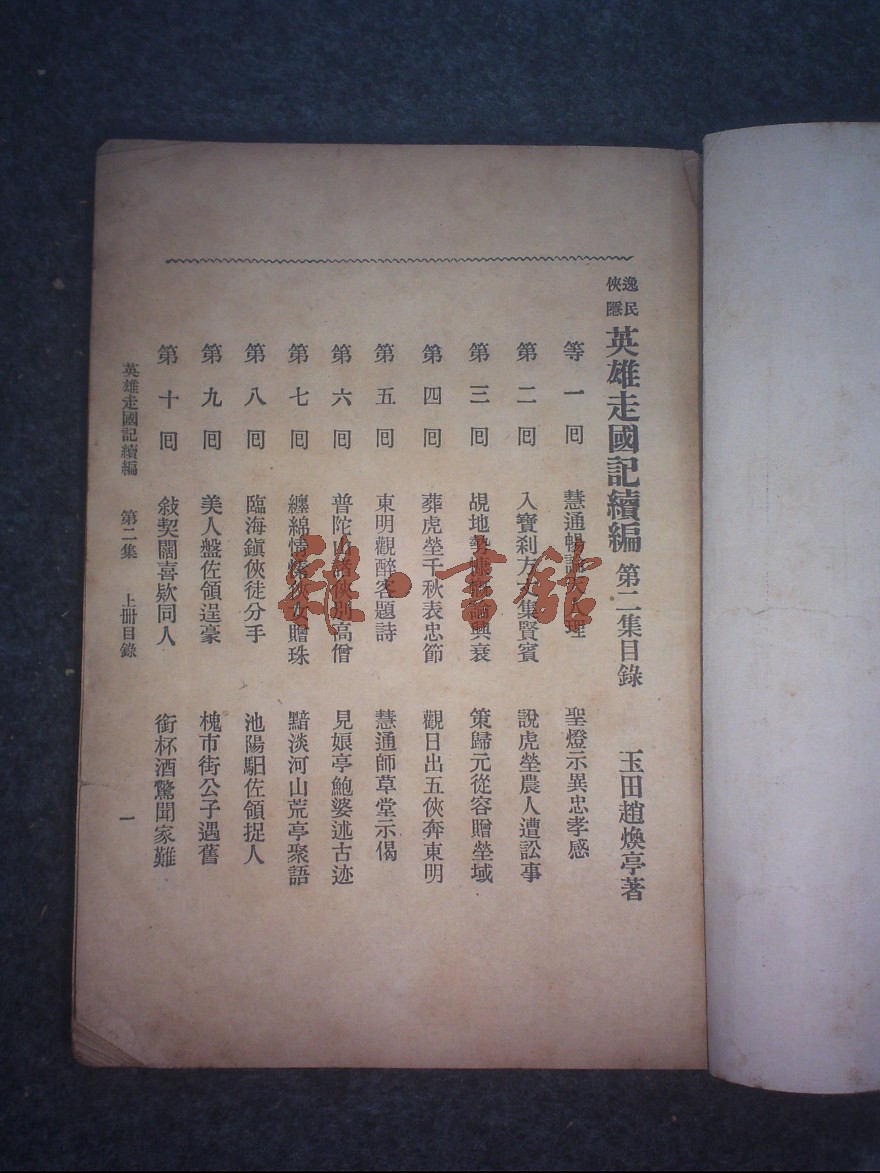 逸民俠隱 英雄走國記續編 第二集目錄 玉田趙煥亭著
等一囘 慧通暢論天人理 聖燈示異忠孝感
第二囘 入寶剎方丈集賢賓 說虎塋農人遭訟事
第三囘 覘地勢慷慨論興衰 策歸元從容贈塋域
第四囘 葬虎塋千秋表忠節 觀日出五俠奔東明
第五囘 東明觀醉客題詩 慧通師草堂示偈
第六囘 普陀山諸俠別高僧 見娘亭鮑婆述古迹
第七囘 纏綿情愫俠女贈珠 黯淡河山荒亭聚語
第八囘 臨海鎭俠徒分手 池陽馹佐領捉人
第九囘 美人盤佐領逞豪 槐市街公子遇舊
第十囘 敍契闊喜欵同人 銜杯酒驚聞家難
英雄走國記續編 第二集 上冊目錄 一
雜·書館